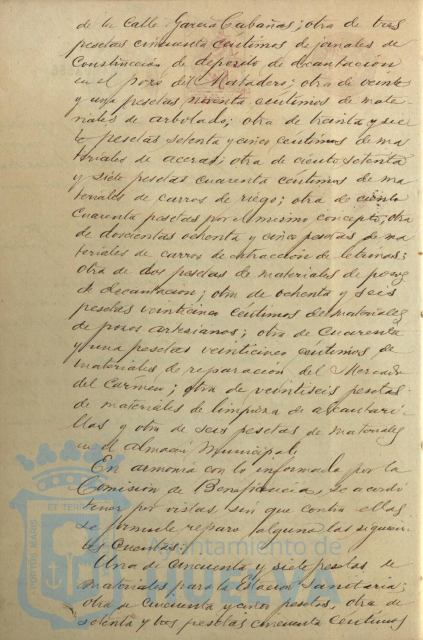 de la Calle García Cabañas; otra de tres
pesetas cincuenta céntimos de jornales de
Construcción de deposito de decantacion
en el pozo del Matadero; otra de veinte
y una pesetas noventa céntimos de mate-
riales de arbolado; otra de treinta y sie
te pesetas setenta y cinco céntimos de ma
teriales de aceras; otra de ciento setenta
y siete pesetas cuarenta céntimos de ma
teriales de carros de riego; otra de ciento
cuarenta pesetas por el mismo concepto; otra
de doscientas ochenta y cinco pesetas de ma
teriales de carros de extracción de letrinas;
otra de dos pesetas de materiales de pozos
de decantacion; otra de ochenta y seis
pesetas veinticinco centimos de materiales
de pozos artesianos; otra de cuarenta
y una pesetas veinticinco céntimos de
materiales de reparación del Mercado
del Carmen; otra de veintiseis pesetas
de materiales de limpieza de alcantari-
llas y otra de seis pesetas de materiales
en el almacén Municipal.
En armonia con lo informado por la
Comisión de Beneficencia, se acordó
tener por vistas, sin que contra ellas
se formule reparo alguno las siguien-
tes Cuentas:
Una de cincuenta y siete pesetas de
materiales para la Estacion Sanitaria;
otra de cincuenta y cinco pesetas, otra de
setenta y tres pesetas cincuenta céntimos
Ayuntamiento de
HUELVA
PORTUS MARIS ET TERRAE